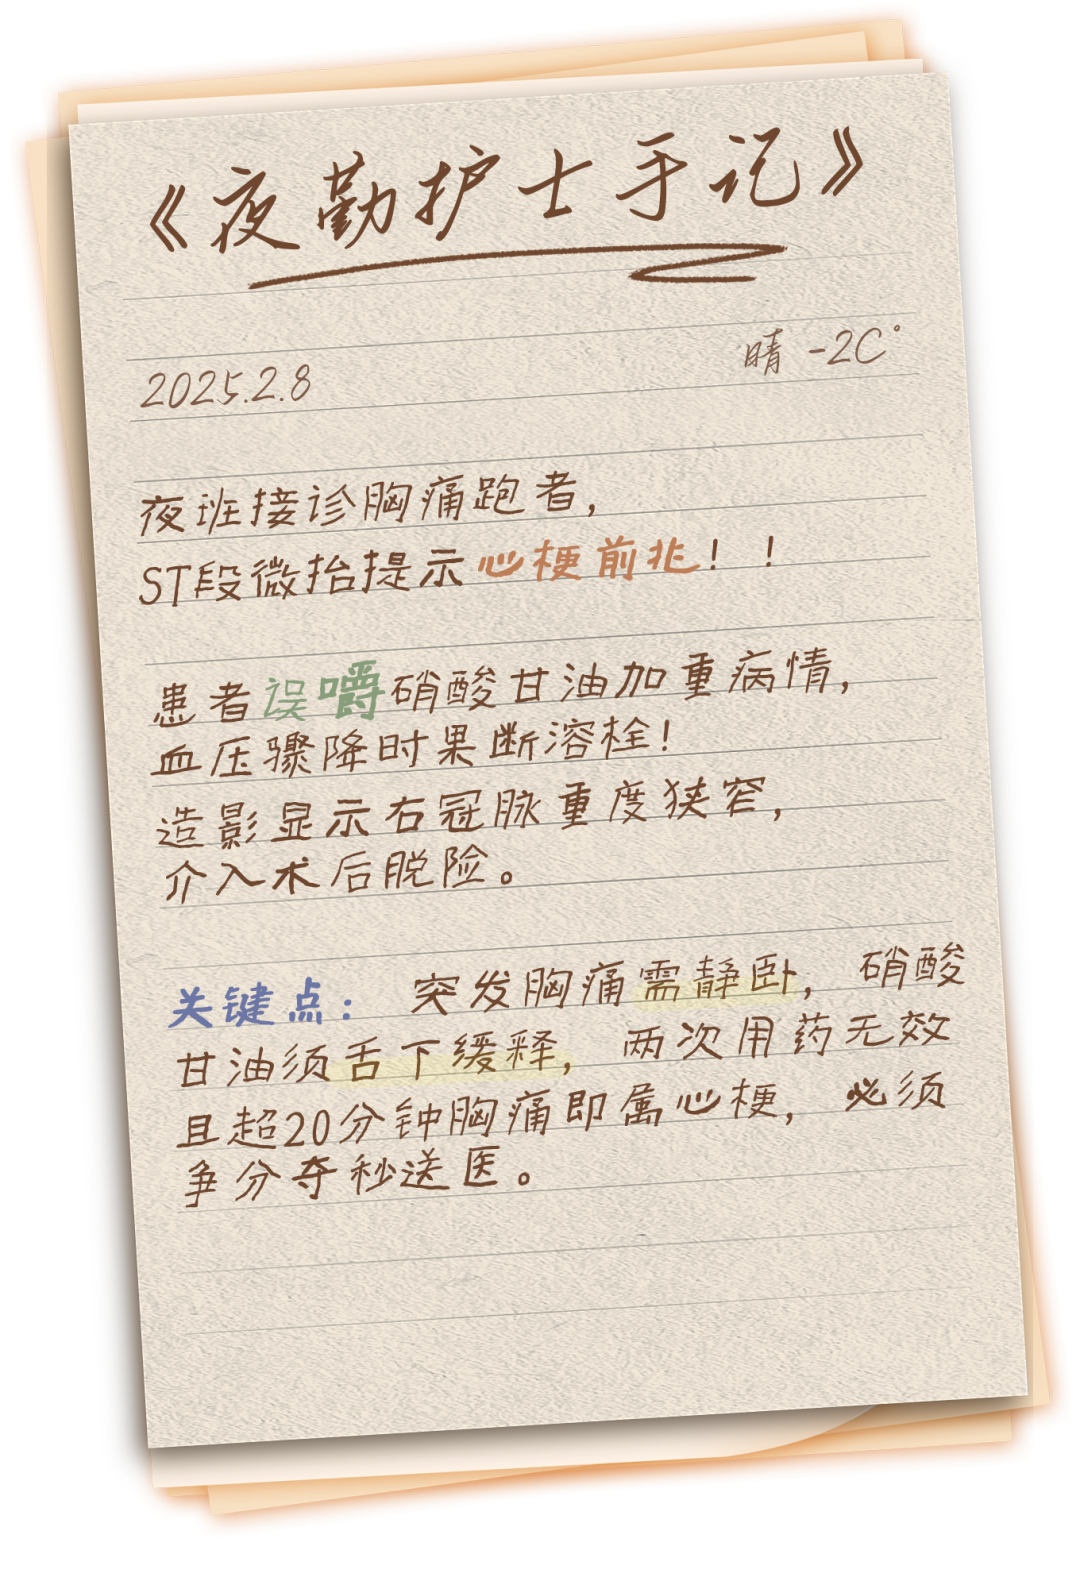 《夜勤护士手记》
2025.2.8
晴 -2C°
夜班接诊胸痛跑者，
ST段微抬提示心梗前兆！！
患者误嚼硝酸甘油加重病情，
血压骤降时果断溶栓！
造影显示右冠脉重度狭窄，
介入术后脱险。
关键点：突发胸痛需静卧，硝酸
甘油须舌下缓释，两次用药无效
且超20分钟胸痛即属心梗，必须
争分夺秒送医。